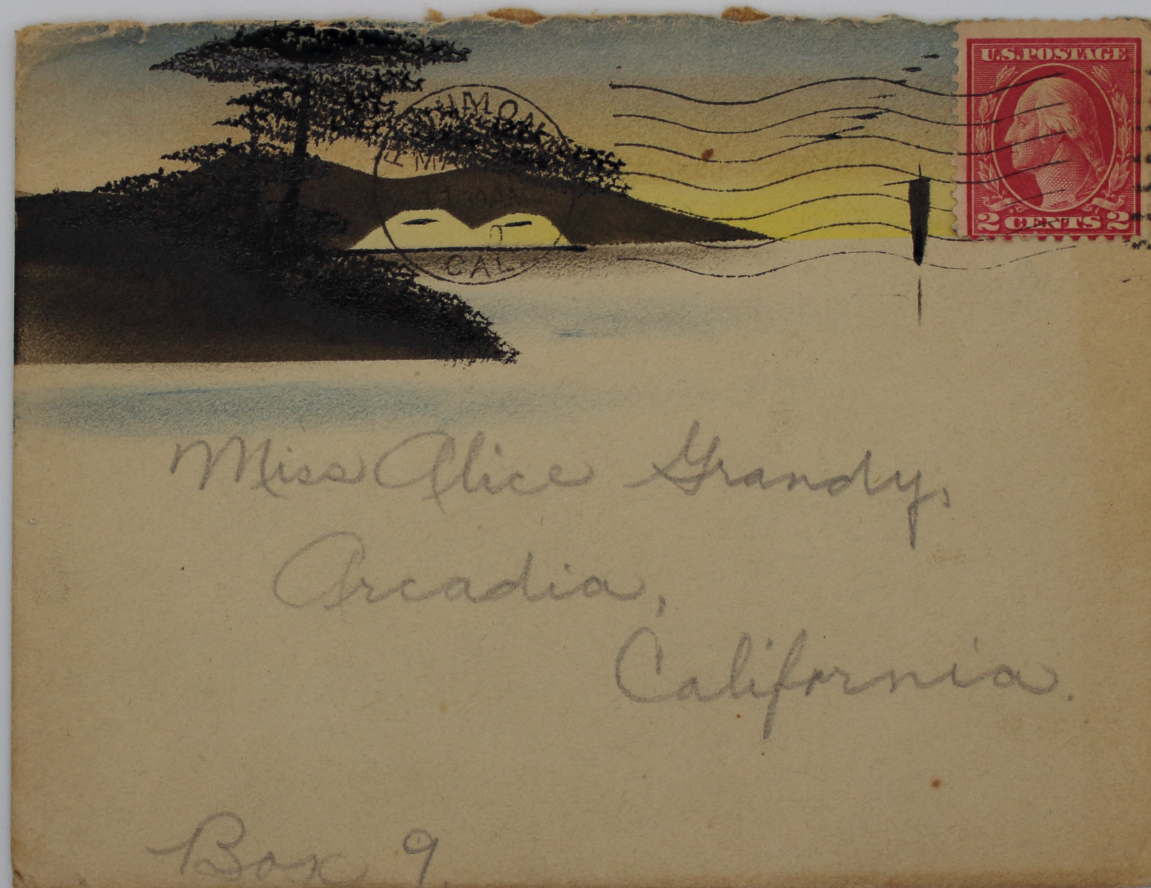 U.S. POSTAGE
2 CENTS 2
CAL.
Miss Alice Grandy,
Arcadia,
California.
Box 9